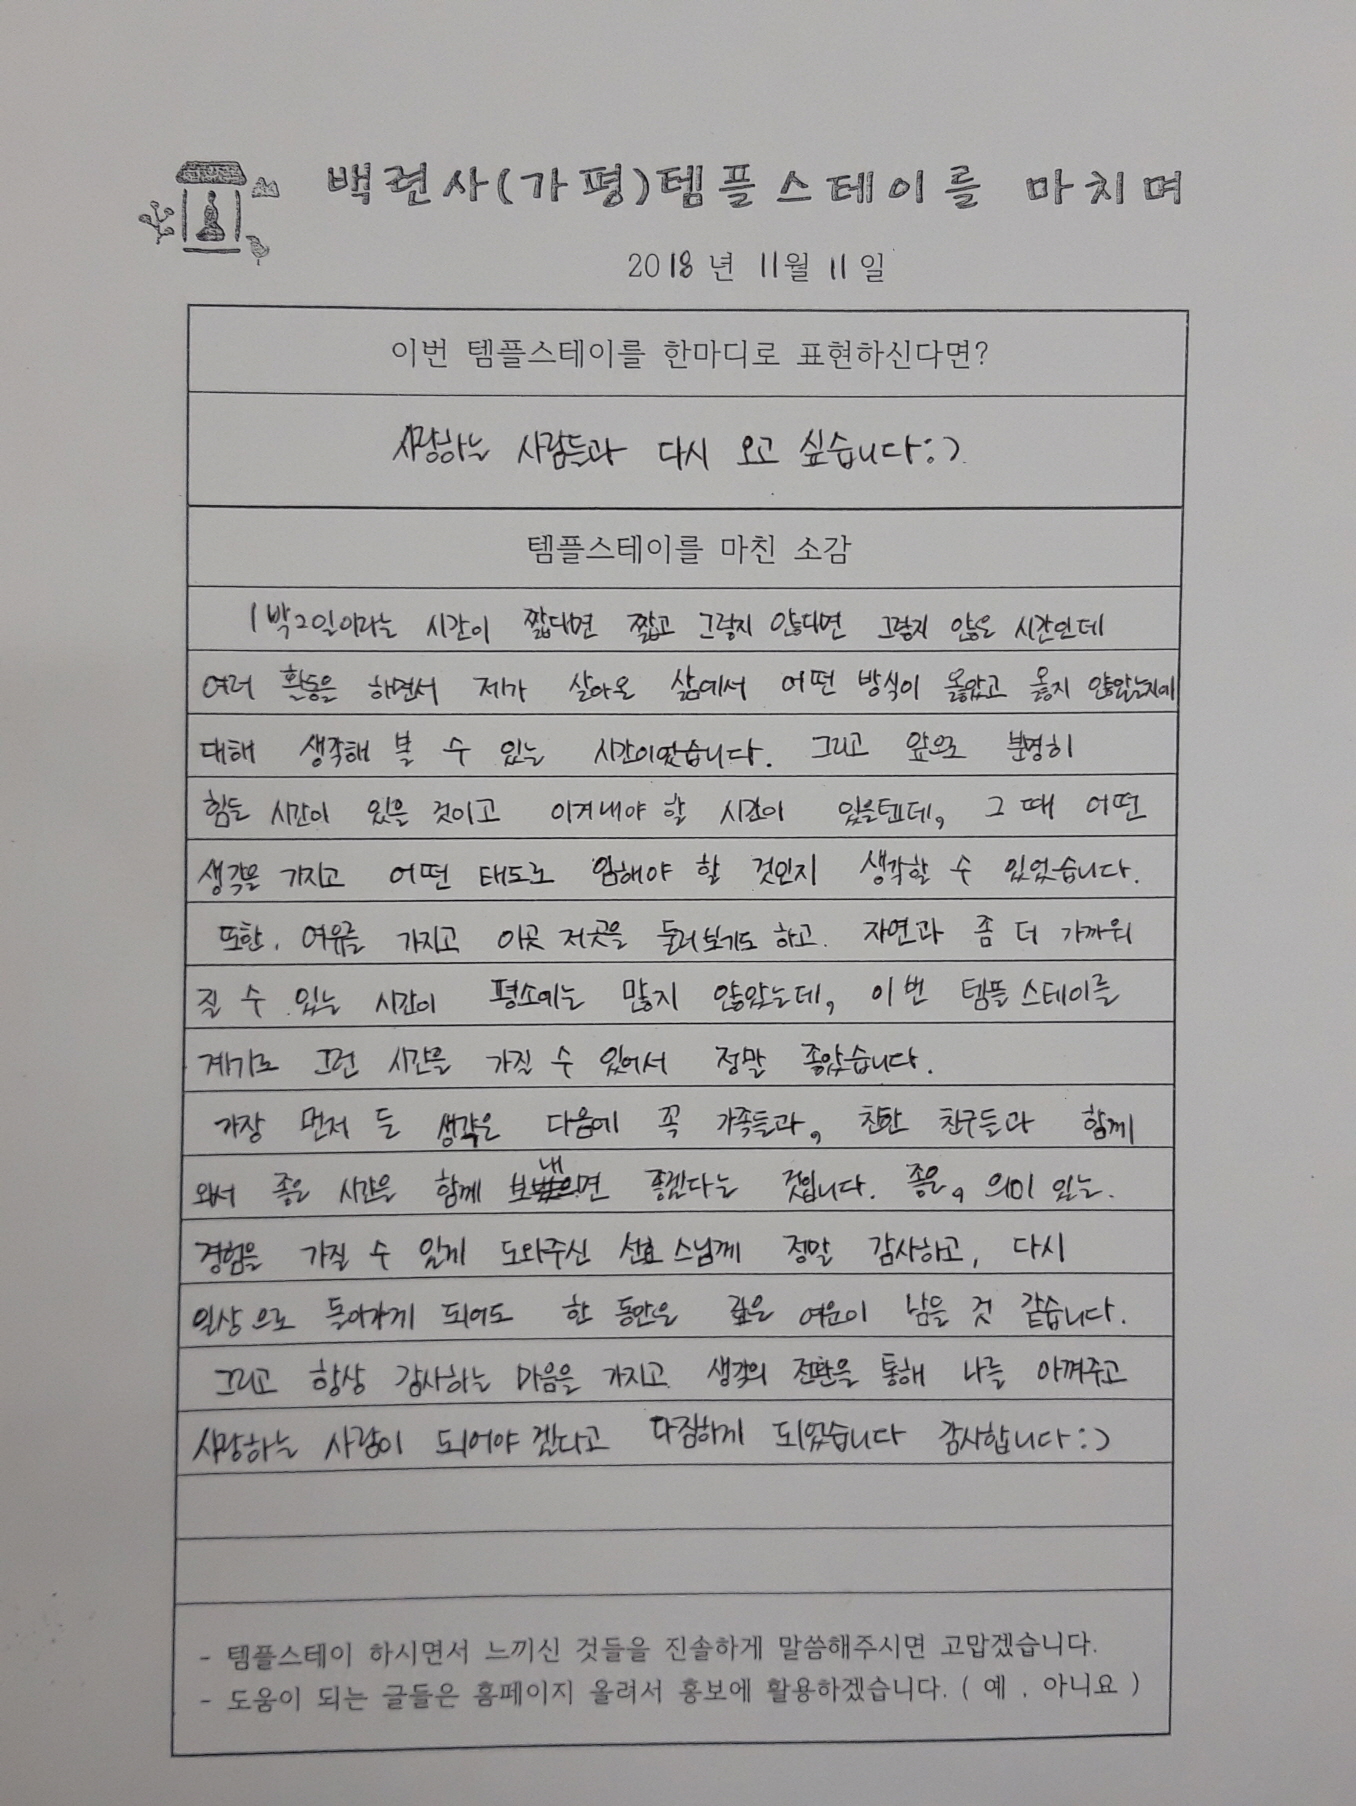 백련사(가평)템플스테이를 마치며
2018년 11월 11일
이번 템플스테이를 한마디로 표현하신다면?
사랑하는 사람들과 다시 오고 싶습니다:)
템플스테이를 마친 소감
1박2일이라는 시간이 짧다면 짧고 그렇지 않다면 그렇지 않은 시간인데
여러 활동을 하면서 제가 살아온 삶에서 어떤 방식이 옳았고 옳지 않았는지에
대해 생각해 볼 수 있는 시간이었습니다. 그리고 앞으로 분명히
힘든 시간이 있을 것이고 이겨내야 할 시간이 있을텐데, 그 때 어떤
생각을 가지고 어떤 태도로 임해야 할 것인지 생각할 수 있었습니다.
또한, 여유를 가지고 이곳 저곳을 둘러보기도 하고. 자연과 좀 더 가까워
질 수 있는 시간이 평소에는 많지 않았는데, 이번 템플스테이를
계기로 그런 시간을 가질 수 있어서 정말 좋았습니다.
가장 먼저 든 생각은 다음에 꼭 가족들과, 친한 친구들과 함께
와서 좋은 시간을 함께 보내면 좋겠다는 것입니다. 좋은, 의미 있는.
경험을 가질 수 있게 도와주신 선효 스님께 정말 감사하고, 다시
일상으로 돌아가게 되어도 한 동안은 깊은 여운이 남을 것 같습니다.
그리고 항상 감사하는 마음을 가지고 생각의 전환을 통해 나를 아껴주고
사랑하는 사람이 되어야 겠다고 다짐하게 되었습니다 감사합니다:)
- 템플스테이 하시면서 느끼신 것들을 진솔하게 말씀해주시면 고맙겠습니다.
- 도움이 되는 글들은 홈페이지 올려서 홍보에 활용하겠습니다. ( 예 , 아니요 )